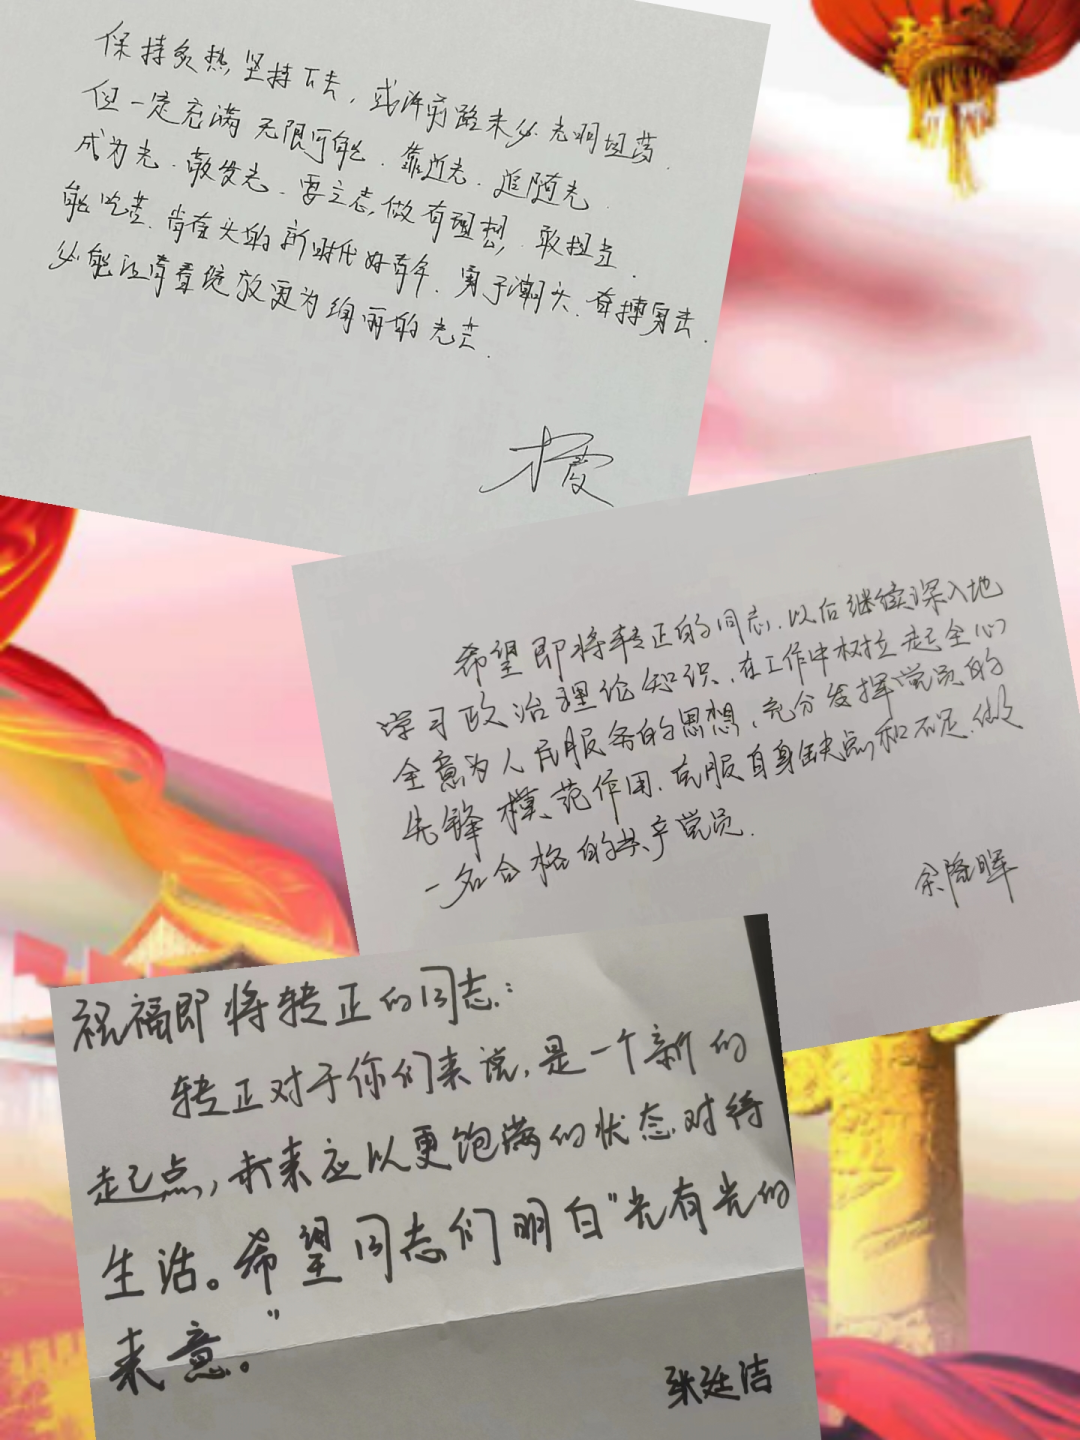 保持炙热,坚持下去,或许前路未必光明坦荡.
但一定充满无限可能.靠近光.追随光.
成为光.散发光.要立志,做有理想,敢担当.
能吃苦.肯奋斗的新时代好青年.勇于潮头.奋搏勇击.
必能让青春绽放更为绚丽的光芒.
希望即将转正的同志.以后继续深入地
学习政治理论知识.在工作中树立起全心
全意为人民服务的思想,充分发挥党员的
先锋模范作用.克服自身缺点和不足.做
一名合格的共产党员.
余隆晖
祝福即将转正的同志:
转正对于你们来说,是一个新的
起点,未来应以更饱满的状态对待
生活。希望同志们明白"光有光的
来意。"
张廷洁